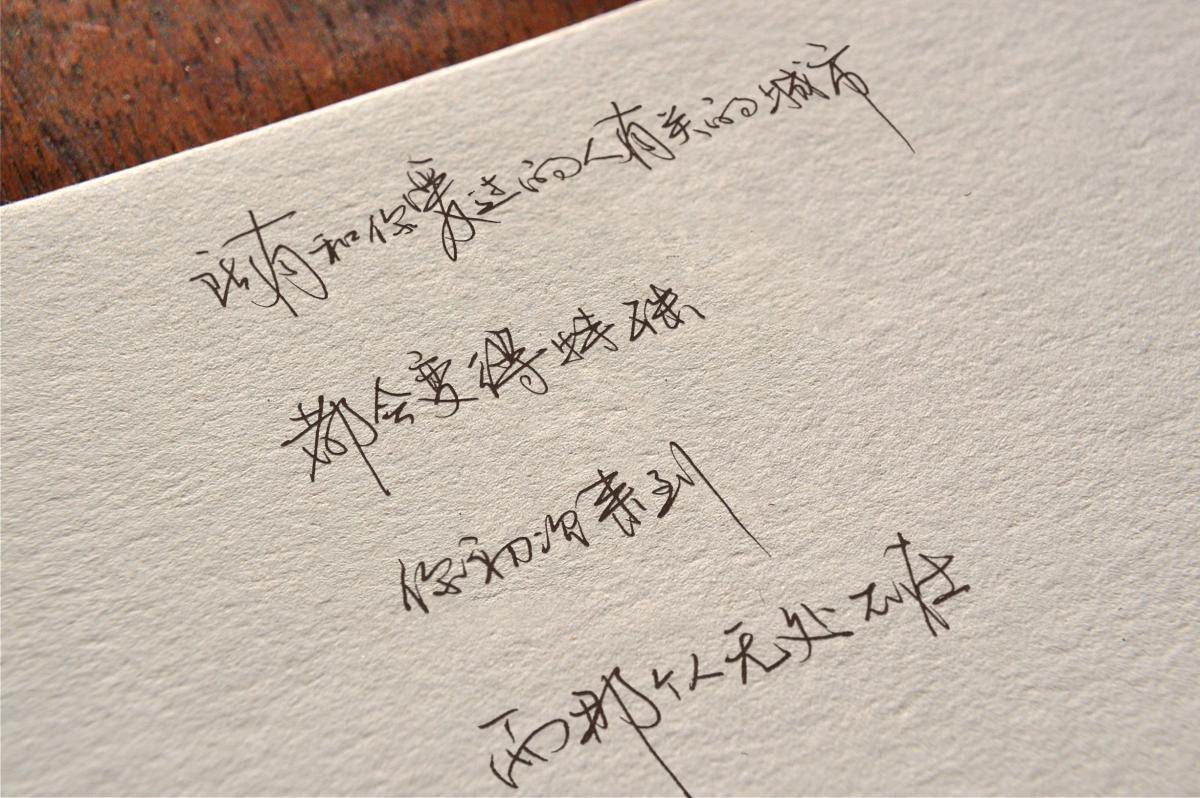 所有和你爱过的人有关的城市
都会变得特殊
你初次来到
而那个人无处不在